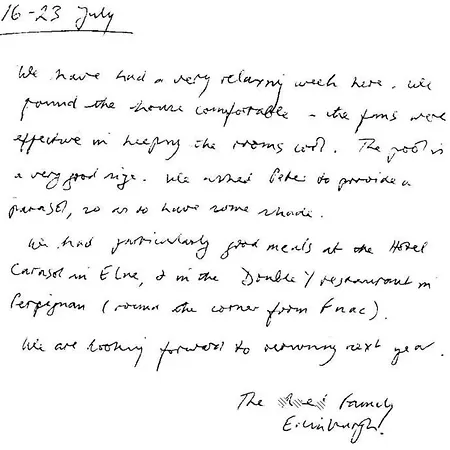 16-23 July
We have had a very relaxing week here. We
found the house comfortable - the fans were
effective in keeping the rooms cool. The pool is
a very good size. We asked Peter to provide a
parasol, so as to have some shade.
We had particularly good meals at the Hotel
Carasol in Elne, & in the Double Y restaurant in
Perpignan (round the corner from Fnac).
We are looking forward to returning next year.
The Family
Edinburgh.